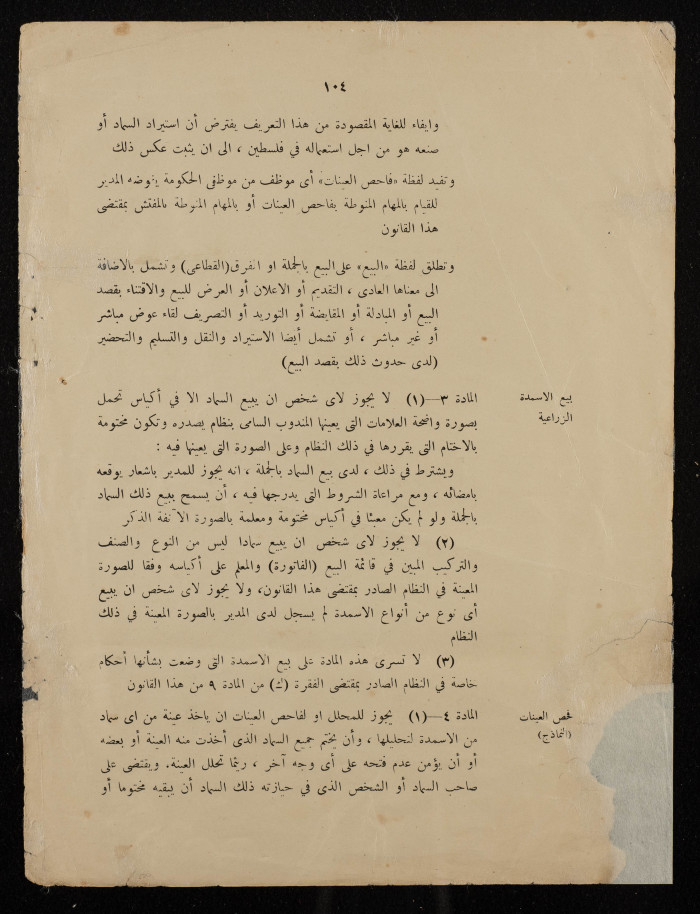 ١٠٤
وايفاء للغاية المقصودة من هذا التعريف يفترض أن استيراد السماد أو
صنعه هو من اجل استعماله في فلسطين ، الى ان يثبت عكس ذلك
وتفيد لفظة «فاحص العينات» أى موظف من موظفى الحكومة يفوضه المدير
للقيام بالمهام المنوطة بفاحص العينات أو بالمهام المنوطة بالمفتش بمقتضى
هذا القانون
وتطلق لفظة «البيع» على البيع بالجملة او المفرق (القطاعى) وتشمل بالاضافة
الى معناها العادى ، التقديم أو الاعلان أو العرض للبيع والاقتناء بقصد
البيع أو المبادلة أو المقايضة أو التوريد أو التصريف لقاء عوض مباشر
أو غير مباشر ، أو تشمل أيضا الاستيراد والنقل والتسليم والتحضير
(لدى حدوث ذلك بقصد البيع)
بيع الاسمدة
الزراعية
المادة ٣—(١) لا يجوز لاى شخص ان يبيع السماد الا في أكياس تحمل
بصورة واضحة العلامات التى يعينها المندوب السامى بنظام يصدره وتكون مختومة
بالاختام التى يقررها في ذلك النظام وعلى الصورة التى يعينها فيه :
ويشترط في ذلك ، لدى بيع السماد بالجملة ، انه يجوز للمدير باشعار يوقعه
بامضائه ، ومع مراعاة الشروط التى يدرجها فيه ، أن يسمح ببيع ذلك السماد
بالجملة ولو لم يكن معبئا في أكياس مختومة ومعلمة بالصورة الآنفة الذكر
(٢) لا يجوز لاى شخص ان يبيع سمادا ليس من النوع والصنف
والتركيب المبين في قائمة البيع (الفاتورة) والمعلم على أكياسه وفقا للصورة
المعينة في النظام الصادر بمقتضى هذا القانون، ولا يجوز لاى شخص ان يبيع
أى نوع من أنواع الاسمدة لم يسجل لدى المدير بالصورة المعينة في ذلك
النظام
(٣) لا تسرى هذه المادة على بيع الاسمدة التى وضعت بشأنها أحكام
خاصة في النظام الصادر بمقتضى الفقرة (ك) من المادة ٩ من هذا القانون
فحص العينات
(النماذج)
المادة ٤—(١) يجوز للمحلل او لفاحص العينات ان ياخذ عينة من اى سماد
من الاسمدة لتحليلها ، وأن يختم جميع السماد الذى أخذت منه العينة أو بعضه
أو أن يؤمن عدم فتحه على أى وجه آخر ، ريثما تحلل العينة. ويقتضى على
صاحب السماد أو الشخص الذى في حيازته ذلك السماد أن يبقيه مختوما أو